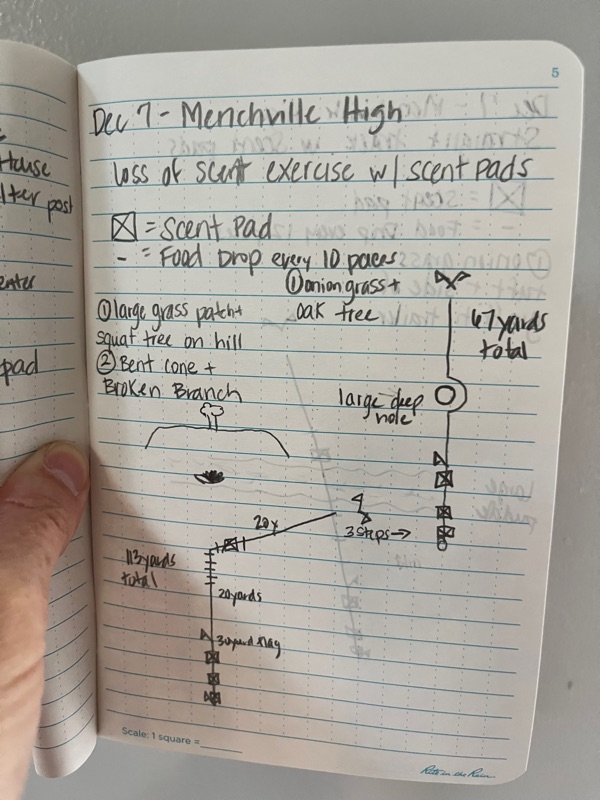 5
Dec 7 - Menchville High
loss of scent exercise w/ scent pads
= Scent Pad
- = Food Drop every 10 paces
① onion grass +
oak tree
① large grass patch +
squat tree on hill
② Bent cone +
Broken Branch
67 yards
total
large deep
hole
3 steps →
20y
113 yards
total
20 yards
30 yard flag
Scale: 1 square =
Rite in the Rain
House
post
pad